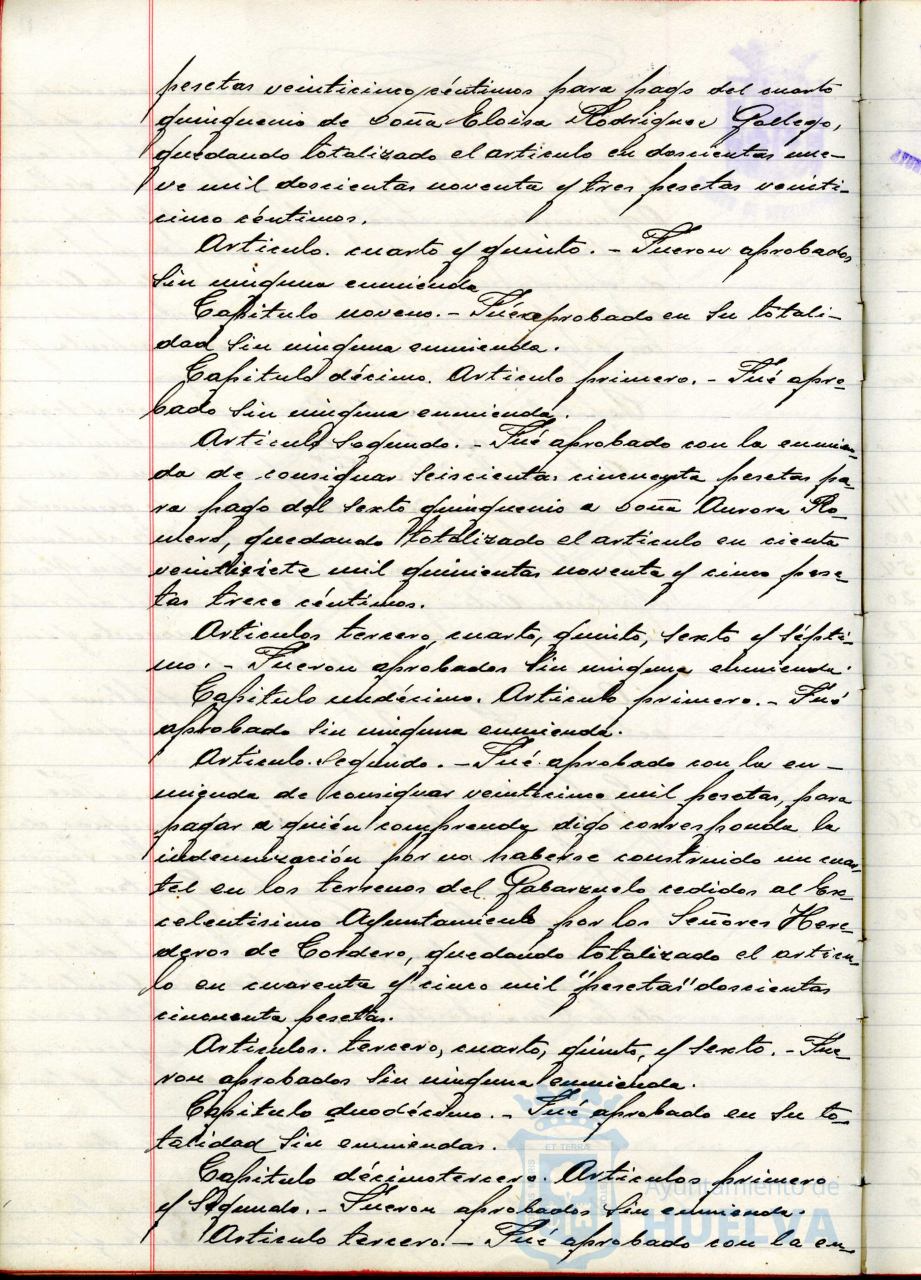 pesetas veinticinco céntimos para pago del cuarto
quinquenio de Doña Eloisa Rodriguez Gallego,
quedando totalizado el articulo en doscientas nue-
ve mil doscientas noventa y tres pesetas veinti-
cinco céntimos.
Articulo. cuarto y quinto. - Fueron aprobados
sin ninguna enmienda
Capitulo noveno. - Fué aprobado en su totali-
dad sin ninguna enmienda.
Capitulo décimo. Articulo primero. - Fué apro-
bado sin ninguna enmienda.
Articulo segundo. - Fué aprobado con la enmien-
da de consignar seiscientas cincuenta pesetas pa-
ra pago del sexto quinquenio a Doña Aurora Ro-
mero, quedando totalizado el articulo en cienta
veintisiete mil quinientas noventa y cinco pese-
tas trece céntimos.
Articulos tercero, cuarto, quinto, sexto y sépti-
mo. - Fueron aprobados sin ninguna enmienda.
Capitulo undécimo. Articulo primero. - Fué
aprobado sin ninguna enmienda.
Articulo. segundo. - Fué aprobado con la en-
mienda de consignar veinticinco mil pesetas, para
pagar a quién comprenda digo corresponda la
indemnización por no haberse construido un cuar-
tel en los terrenos del Gabarzuelo cedidos al Ex-
celentisimo Ayuntamiento por los Señores Here-
deros de Cordero, quedando totalizado el articu-
lo en cuarenta y cinco mil "pesetas" doscientas
cincuenta pesetas.
Articulos. tercero, cuarto, quinto, y sexto. - Fue-
ron aprobados sin ninguna enmienda.
Capitulo duodécimo. - Fué aprobado en su to-
talidad sin enmiendas.
Capitulo décimotercero. Articulos primero
y segundo. - Fueron aprobados sin enmienda.
Articulo tercero. - Fué aprobado con la en-
Ayuntamiento de
HUELVA